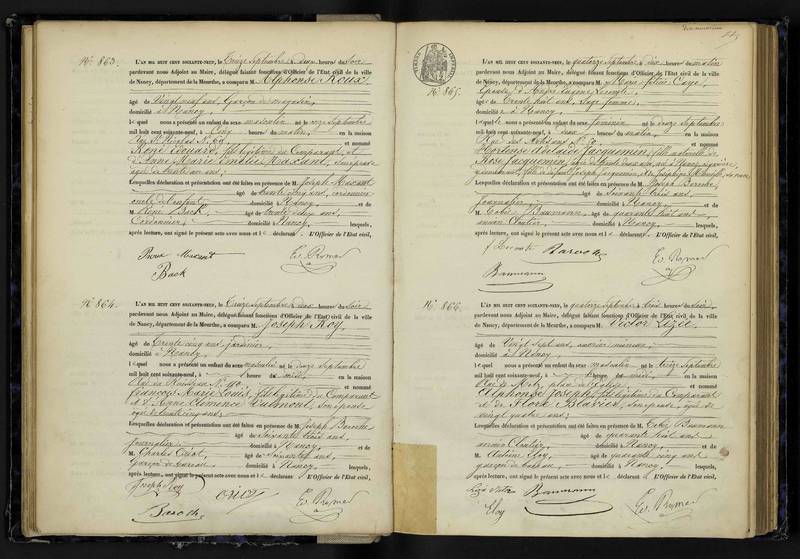 N° 863.
L'AN MIL HUIT CENT SOIXANTE-NEUF, le Treize Septembre à deux heures du Soir
pardevant nous Adjoint au Maire, délégué faisant fonctions d'Officier de l'Etat civil de la ville
de Nancy, département de la Meurthe, a comparu M. Alphonse Roux,
âgé de Vingt neuf ans, Garçon de magasin,
domicilié à Nancy
lequel nous a présenté un enfant du sexe masculin né le onze Septembre
mil huit cent soixante-neuf, à Cinq heures du matin, en la maison
Rue St Nicolas N° et nommé
René Edouard, fils légitime du Comparant et
d'Anne Marie Emélie Macant, Son épouse
âgée de trente un ans;
Lesquelles déclaration et présentation ont été faites en présence de M. Joseph Macant
âgé de trente cinq ans, cordonnier
oncle de l'enfant domicilié à Nancy et de
M. Back, âgé de trente deux ans,
Cordonnier domicilié à Nancy lesquels,
après lecture, ont signé le présent acte avec nous et le déclarant. L'Officier de l'Etat civil,
Roux Macant Ev. Roman
Back
N° 864.
L'AN MIL HUIT CENT SOIXANTE-NEUF, le Treize Septembre à deux heures du Soir
pardevant nous Adjoint au Maire, délégué faisant fonctions d'Officier de l'Etat civil de la ville
de Nancy, département de la Meurthe, a comparu M. Joseph Roy,
âgé de Trente cinq ans, jardinier,
domicilié à Nancy
lequel nous a présenté un enfant du sexe masculin né le douze Septembre
mil huit cent soixante-neuf, à heure du midi, en la maison
Rue du Ruisseau N° et nommé
François Marie Louis, fils légitime du Comparant
et d'Anne Clémence Aubriont, Son épouse
âgée de trente cinq ans;
Lesquelles déclaration et présentation ont été faites en présence de M. Joseph Baroche
âgé de Soixante trois ans,
journalier domicilié à Nancy, et de
M. Charles âgé de Soixante ans,
Garçon de bureau domicilié à Nancy, lesquels,
après lecture, ont signé le présent acte avec nous et le déclarant. L'Officier de l'Etat civil,
Joseph Roy Ev. Roman
Baroche
N° 865.
L'AN MIL HUIT CENT SOIXANTE-NEUF, le quatorze Septembre à dix heures du matin
pardevant nous Adjoint au Maire, délégué faisant fonctions d'Officier de l'Etat civil de la ville
de Nancy, département de la Meurthe, a comparu M. Marie
Epouse d'André Eugène
âgée de Trente huit ans, Sage femme,
domiciliée à Nancy
laquelle nous a présenté un enfant du sexe féminin né le onze Septembre
mil huit cent soixante-neuf, à deux heures du matin, en la maison
Rue des Artisans N° et nommé
Hortense Adélaïde Jacquemin, fille naturelle de
Rose Jacquemin, âgée de
Lesquelles déclaration et présentation ont été faites en présence de M. Joseph Baroche,
âgé de Soixante trois ans,
journalier domicilié à Nancy et de
M. Eobie Baumann, âgé de quarante huit ans
ancien Cloutier, domicilié à Nancy lesquels,
après lecture, ont signé le présent acte avec nous et la déclarante. L'Officier de l'Etat civil,
Baroche Ev. Roman
Baumann
N° 866.
L'AN MIL HUIT CENT SOIXANTE-NEUF, le quatorze Septembre à trois heures du Soir
pardevant nous Adjoint au Maire, délégué faisant fonctions d'Officier de l'Etat civil de la ville
de Nancy, département de la Meurthe, a comparu M. Victor
âgé de Vingt sept ans, ouvrier mineur,
domicilié à Nancy
lequel nous a présenté un enfant du sexe masculin né le treize Septembre
mil huit cent soixante-neuf, à heure du midi, en la maison
Rue de Metz, et nommé
Alphonse Joseph, fils légitime du Comparant
et de Marie Blavier, Son épouse, âgée de
vingt quatre ans;
Lesquelles déclaration et présentation ont été faites en présence de M. Eobie Baumann
âgé de quarante huit ans
ancien Cloutier, domicilié à Nancy, et de
M. Antoine Eloy, âgé de quarante cinq ans
garçon de bureau, domicilié à Nancy, lesquels,
après lecture, ont signé le présent acte avec nous et le déclarant. L'Officier de l'Etat civil,
Victor Baumann Ev. Roman
Eloy